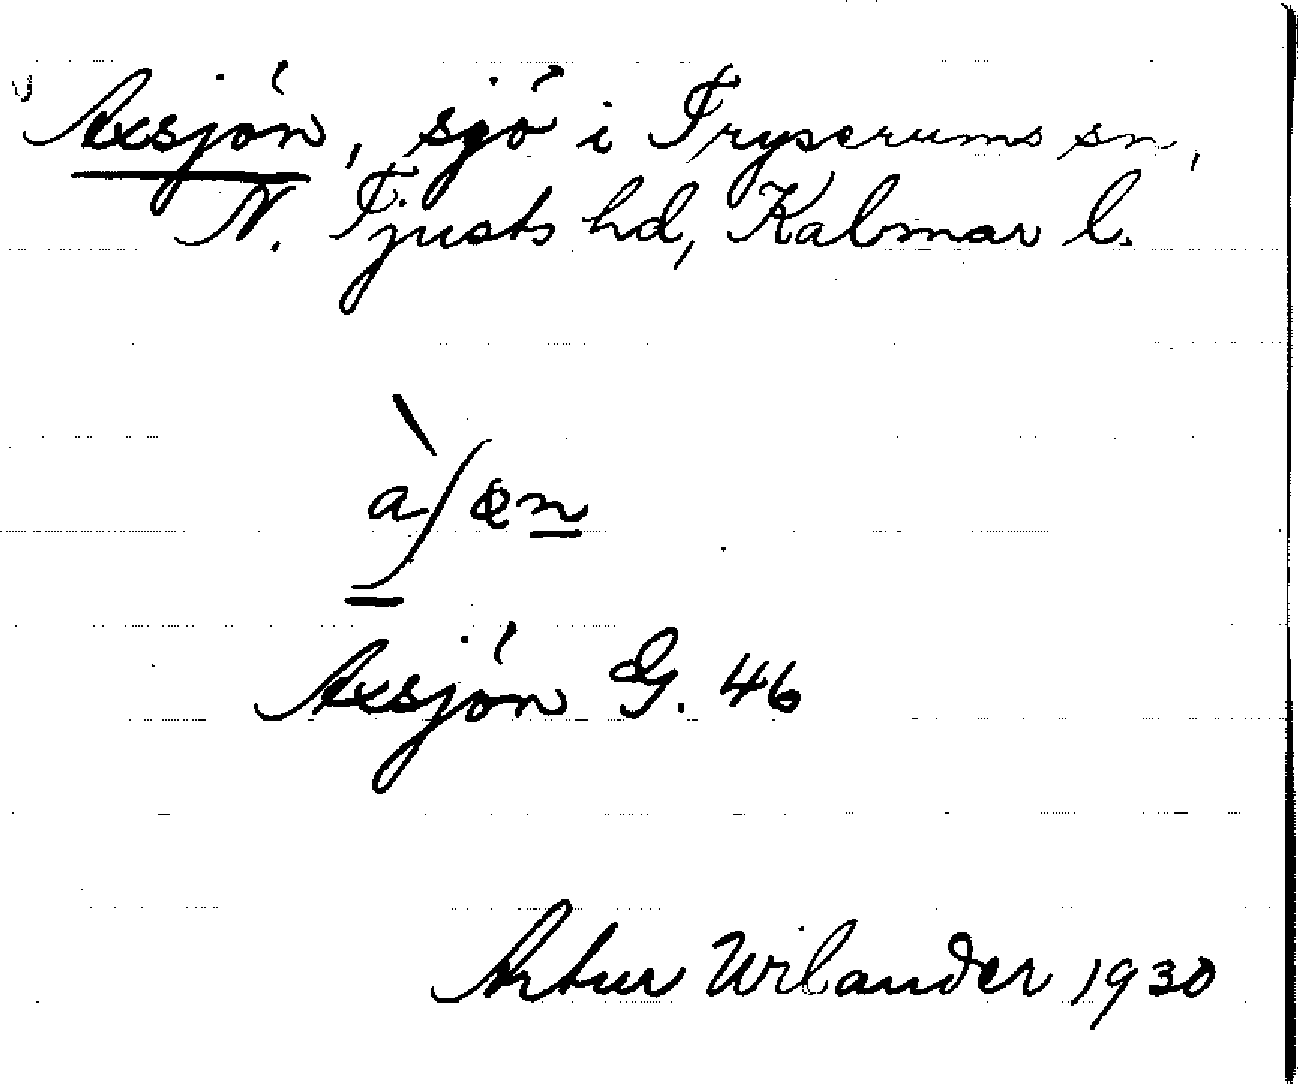 Axsjön, sjö i Tryserums sn,
N. Tjusts hd, Kalmar l.
àʃɶn
Axsjön G. 46
Artur Wilander 1930